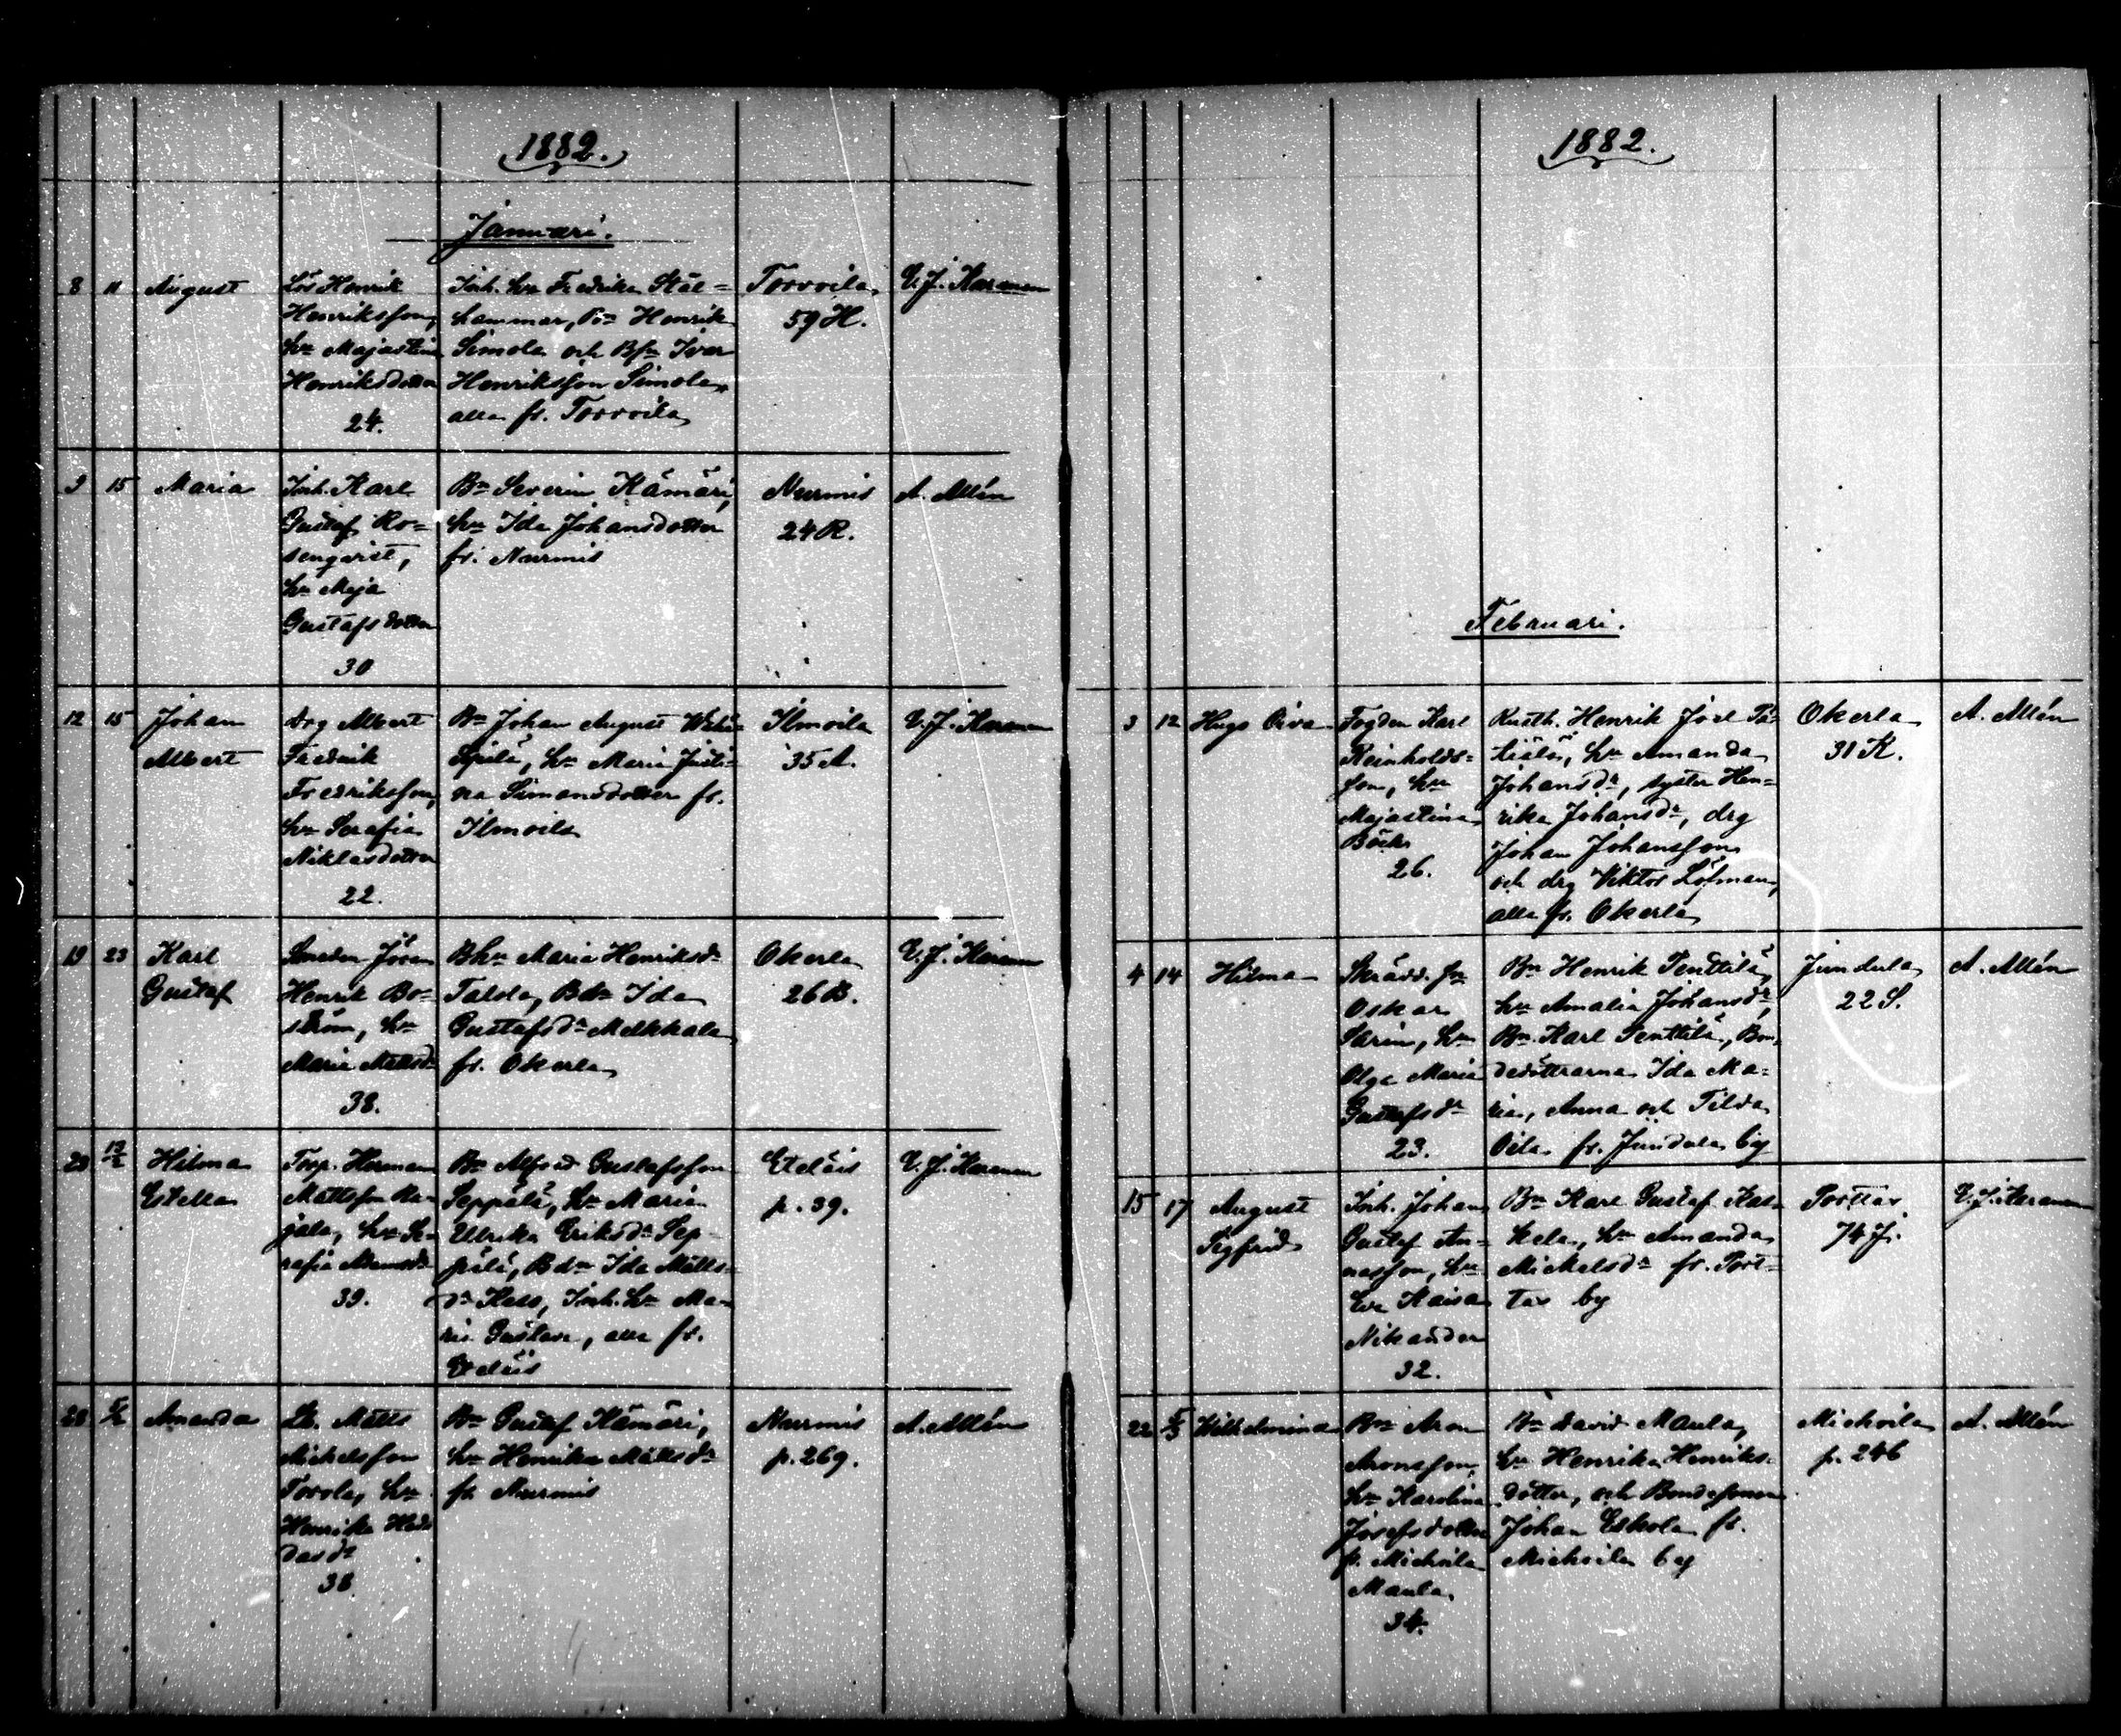 1882.
Januari.
8 11 August
Lös Henrik
Henriksson,
hu Majastina
Henriksdotter
24.
Inh. hu Fredrika Stål=
hammar, Bn Henrik
Simola och Bsn Ivar
Henriksson Simola,
alla fr. Torvoila
Torvoila
59 H.
E. J. Karanen
9 15 Maria
Inh. Karl
Gustaf Ro=
senqvist,
hu Maja
Gustafsdotter
30
Bn Severin Kämäri,
hu Ida Johansdotter
fr. Nurmis
Nurmis
24 R.
A. Allén
12 15 Johan
Albert
Drg Albert
Fredrik
Fredriksson,
hu Serafia
Niklasdotter
22.
Bn Johan August
hu Maria Justi=
na Simonsdotter fr.
Ilmoila
Ilmoila
35 A.
E. J. Karanen
19 23 Karl
Gustaf
Smeden Jöran
Henrik Bo=
ström, hu
Maria Mattsdr
38.
Bhu Maria Henriksdr
Talola, Bdr Ida
Gustafsdr Melkkala
fr. Okerla
Okerla
26 B.
E. J. Karanen
20 12/2 Hilma
Estella
Torp. Herman
Mattsson Ra=
jala, hu Se=
rafia Adamsdr
39.
Bn Alfred Gustafsson
Seppälä, hu Maria
Ulrika Eriksdr Sep=
pälä, Bdr Ida Matts=
dr Kass, Inh. hu Ma=
ria Gustava, alla fr.
Eteläis
Eteläis
p. 39.
E. J. Karanen
28 5/2 Amanda
Lb. Matts
Michelsson
Torola, hu
Henrika
dasdr
38
Bn Gustaf Kämäri,
hu Henrika Mattsdr
fr. Nurmis
Nurmis
p. 269.
A. Allén
1882.
Februari.
3 12 Hugo Oiva
Fogden Karl
Reinholds=
son, hu
Majastina
Böök
26.
Rusth. Henrik Joel
hu Amanda
Johansdr, syster Hen=
rika Johansdr, drg
Johan Johansson
och drg Viktor Löfman,
alla fr. Okerla
Okerla
31 K.
A. Allén
4 14 Hilma
Skrädd. sn
Oskar
Sarin, hu
Olga Maria
Gustafsdr
23.
Bn Henrik Penttilä,
hu Amalia Johansdr,
Bn Karl Penttilä, Bon=
dedöttrarna Ida Ma=
ria, Anna och Tilda
Oila fr. Jundula by
Jundula
22 S.
A. Allén
15 17 August
Sigfrid
Inh. Johan
Gustaf An=
nasson, hu
Eva Kaisa
Nikander
32.
Bn Karl Gustaf Kas=
kela, hu Amanda
Mickelsdr fr. Port=
tas by
Porttas
74 J.
E. J. Karanen
22 5/3 Wilhelmina
Bn Aron
Aronsson,
hu Karolina
Josefsdotter
fr. Michoila
Maula.
34.
Bn David Maula,
hu Henrika Henriks=
dotter, och Bondesonen
Johan Eskola fr.
Michoila by
Michoila
p. 246
A. Allén